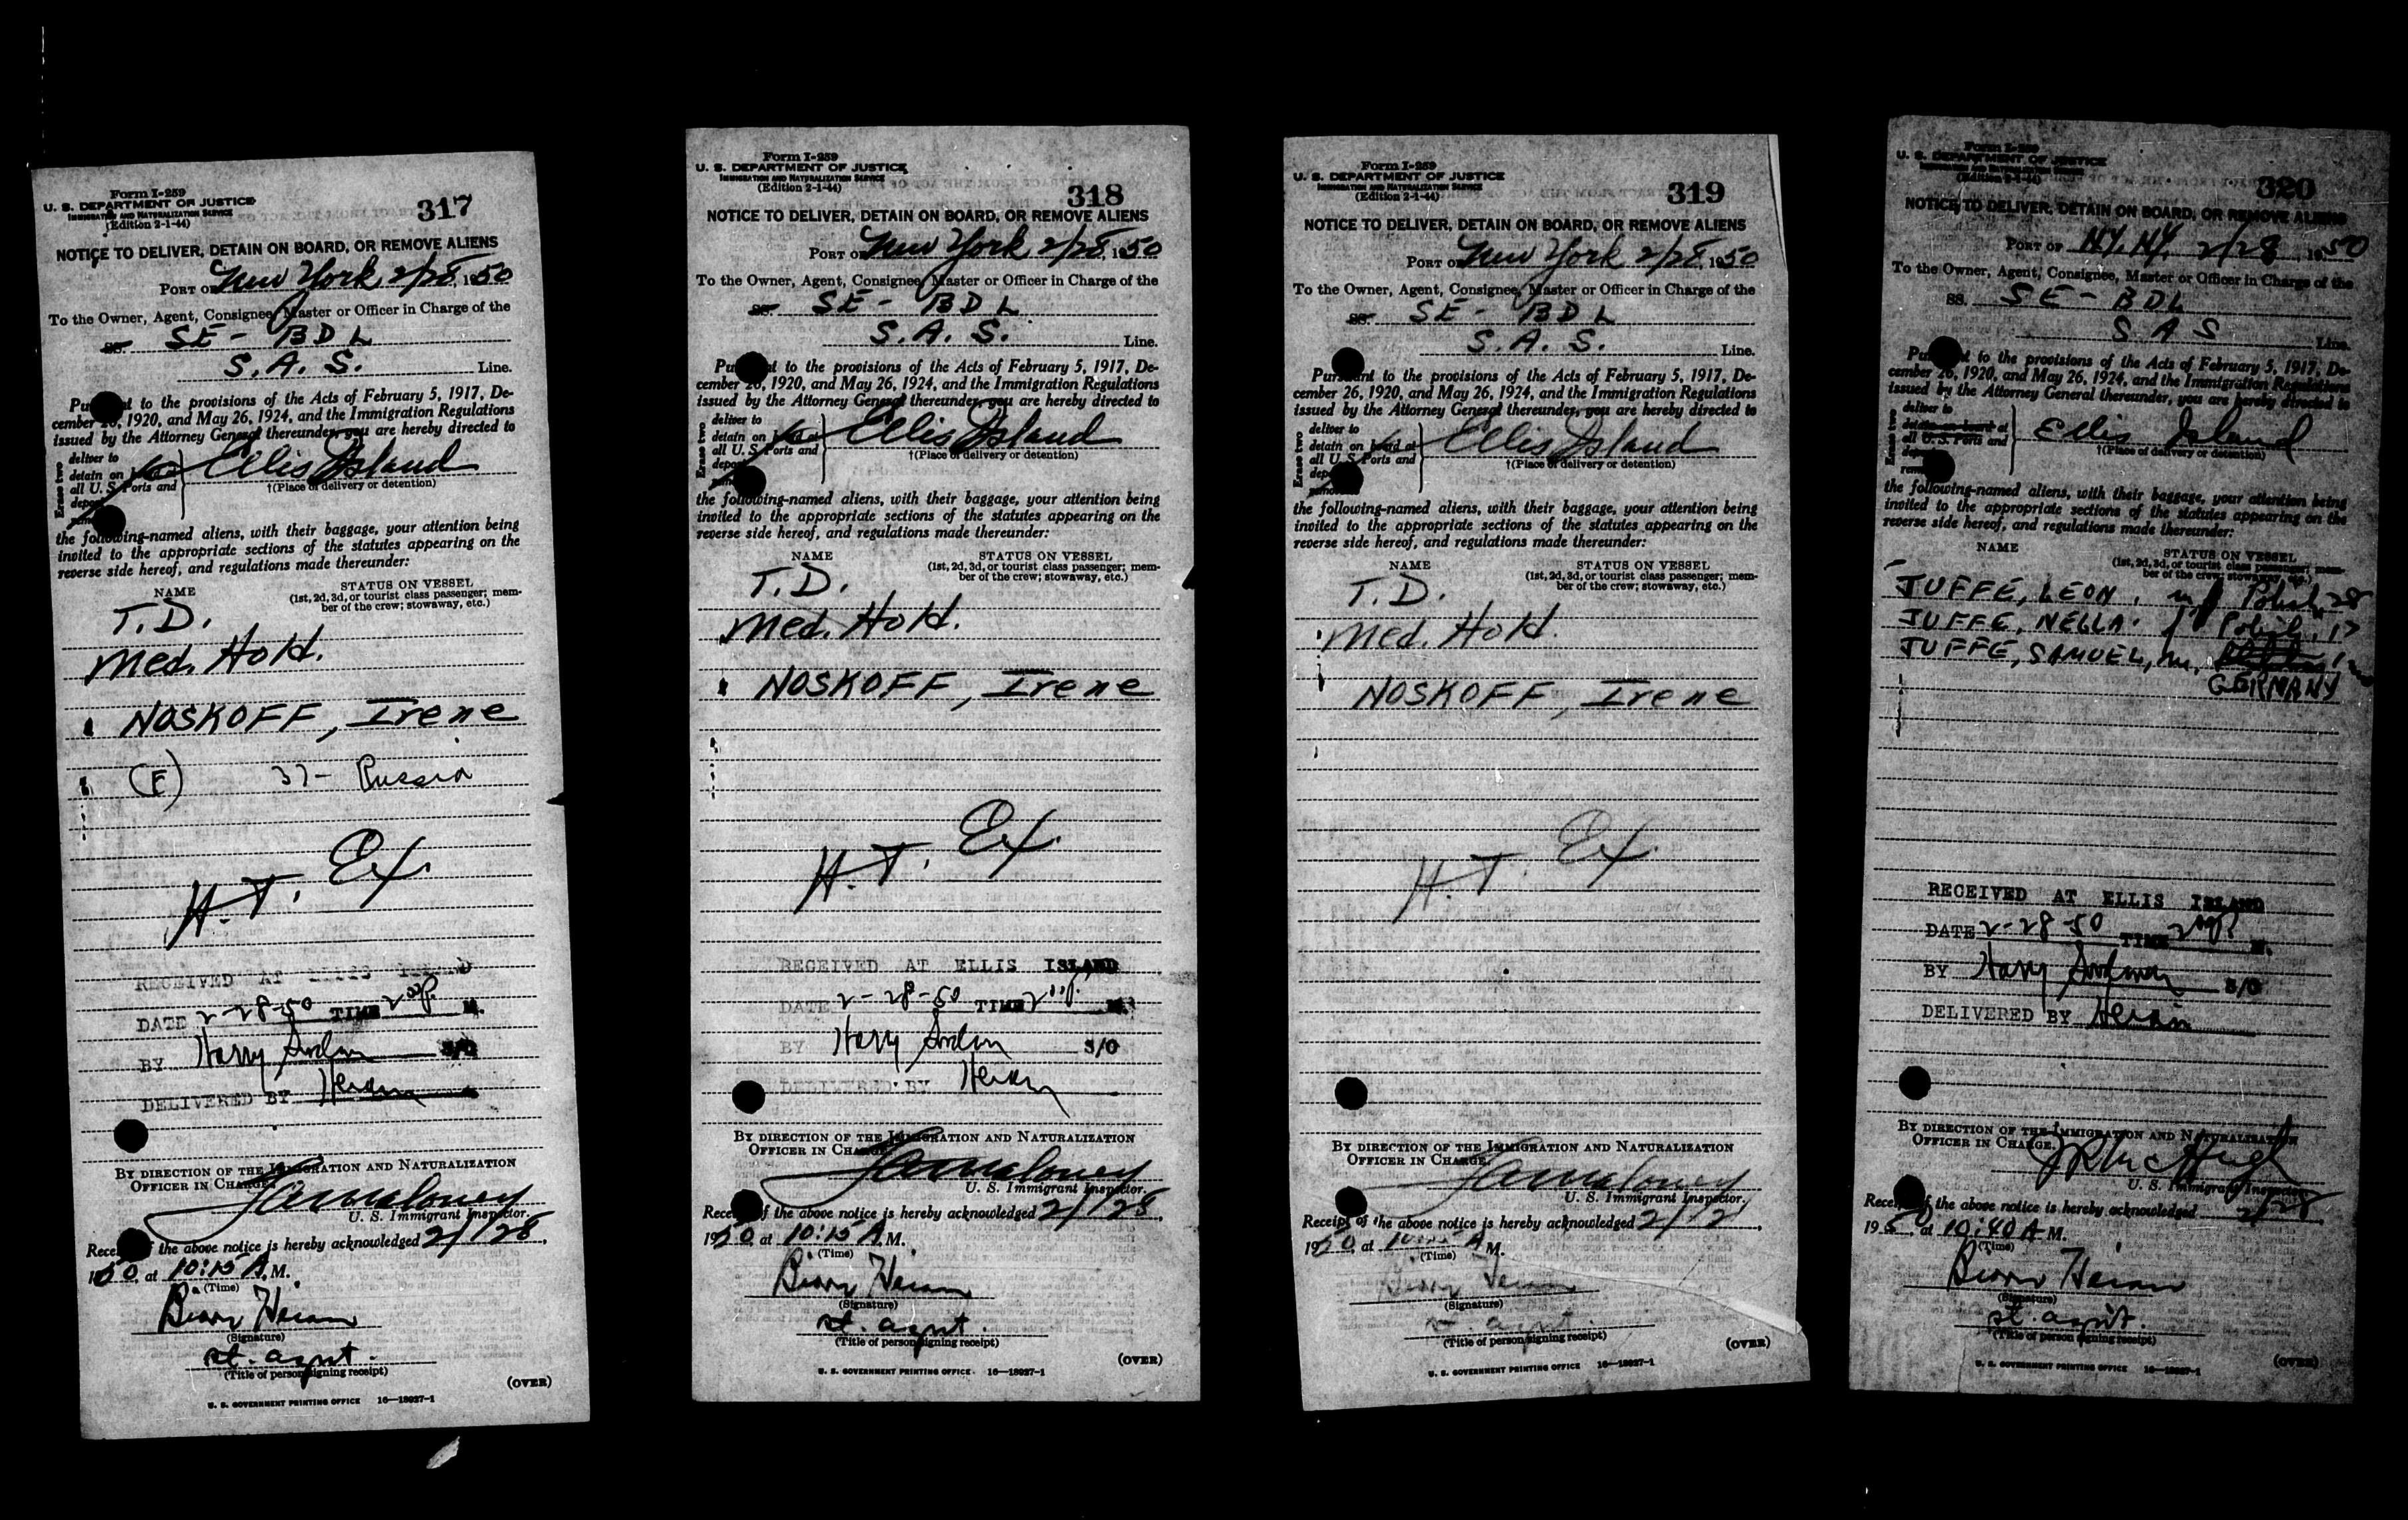 Form I-259
U. S. DEPARTMENT OF JUSTICE
IMMIGRATION AND NATURALIZATION SERVICE
(Edition 2-1-44)
317
NOTICE TO DELIVER, DETAIN ON BOARD, OR REMOVE ALIENS
PORT OF New York 2/28, 1950
To the Owner, Agent, Consignee, Master or Officer in Charge of the
SS. SE- BDL
S.A.S. Line.
Pursuant to the provisions of the Acts of February 5, 1917, De-
cember 26, 1920, and May 26, 1924, and the Immigration Regulations
issued by the Attorney General thereunder, you are hereby directed to
Erase two
deliver to
detain on board at
all U. S. Ports and
Ellis Island
†(Place of delivery or detention)
the following-named aliens, with their baggage, your attention being
invited to the appropriate sections of the statutes appearing on the
reverse side hereof, and regulations made thereunder:
NAME
STATUS ON VESSEL
(1st, 2d, 3d, or tourist class passenger; mem-
ber of the crew; stowaway, etc.)
T.D.
Med. Hold.
NOSKOFF, Irene
(F) 37- Russia
H.T. Ex.
RECEIVED AT ELLIS ISLAND
DATE 2-28-50 TIME 2 00 P. M.
BY Harry S/O
DELIVERED BY Heran
BY DIRECTION OF THE IMMIGRATION AND NATURALIZATION
OFFICER IN CHARGE.
U. S. Immigrant Inspector.
Receipt of the above notice is hereby acknowledged 2/28,
1950, at 10:15 A.M.
(Time)
(Signature)
st. agnt.
(Title of person signing receipt)
(OVER)
U. S. GOVERNMENT PRINTING OFFICE 16—18927-1
Form I-259
U. S. DEPARTMENT OF JUSTICE
IMMIGRATION AND NATURALIZATION SERVICE
(Edition 2-1-44)
318
NOTICE TO DELIVER, DETAIN ON BOARD, OR REMOVE ALIENS
PORT OF New York 2/28, 1950
To the Owner, Agent, Consignee, Master or Officer in Charge of the
SS. SE- BDL
S.A.S. Line.
Pursuant to the provisions of the Acts of February 5, 1917, De-
cember 26, 1920, and May 26, 1924, and the Immigration Regulations
issued by the Attorney General thereunder, you are hereby directed to
Erase two
deliver to
detain on board at
all U. S. Ports and
Ellis Island
†(Place of delivery or detention)
the following-named aliens, with their baggage, your attention being
invited to the appropriate sections of the statutes appearing on the
reverse side hereof, and regulations made thereunder:
NAME
STATUS ON VESSEL
(1st, 2d, 3d, or tourist class passenger; mem-
ber of the crew; stowaway, etc.)
T.D.
Med. Hold.
NOSKOFF, Irene
H.T. Ex.
RECEIVED AT ELLIS ISLAND
DATE 2-28-50 TIME 2 P. M.
BY Harry S/O
DELIVERED BY Heran
BY DIRECTION OF THE IMMIGRATION AND NATURALIZATION
OFFICER IN CHARGE.
U. S. Immigrant Inspector.
Receipt of the above notice is hereby acknowledged 2/28,
1950, at 10:15 A.M.
(Time)
(Signature)
st. agnt.
(Title of person signing receipt)
(OVER)
U. S. GOVERNMENT PRINTING OFFICE 16—18927-1
Form I-259
U. S. DEPARTMENT OF JUSTICE
IMMIGRATION AND NATURALIZATION SERVICE
(Edition 2-1-44)
319
NOTICE TO DELIVER, DETAIN ON BOARD, OR REMOVE ALIENS
PORT OF New York 2/28, 1950
To the Owner, Agent, Consignee, Master or Officer in Charge of the
SS. SE- BDL
S.A.S. Line.
Pursuant to the provisions of the Acts of February 5, 1917, De-
cember 26, 1920, and May 26, 1924, and the Immigration Regulations
issued by the Attorney General thereunder, you are hereby directed to
Erase two
deliver to
detain on board at
all U. S. Ports and
Ellis Island
†(Place of delivery or detention)
the following-named aliens, with their baggage, your attention being
invited to the appropriate sections of the statutes appearing on the
reverse side hereof, and regulations made thereunder:
NAME
STATUS ON VESSEL
(1st, 2d, 3d, or tourist class passenger; mem-
ber of the crew; stowaway, etc.)
T.D.
Med. Hold.
NOSKOFF, Irene
H.T. Ex.
BY DIRECTION OF THE IMMIGRATION AND NATURALIZATION
OFFICER IN CHARGE.
U. S. Immigrant Inspector.
Receipt of the above notice is hereby acknowledged 2/2,
1950, at 10:15 A.M.
(Time)
(Signature)
st. agnt.
(Title of person signing receipt)
(OVER)
U. S. GOVERNMENT PRINTING OFFICE 16—18927-1
Form I-259
U. S. DEPARTMENT OF JUSTICE
IMMIGRATION AND NATURALIZATION SERVICE
(Edition 2-1-44)
320
NOTICE TO DELIVER, DETAIN ON BOARD, OR REMOVE ALIENS
PORT OF N.Y. N.Y. 2/28, 1950
To the Owner, Agent, Consignee, Master or Officer in Charge of the
SS. SE- BDL
S A S Line.
Pursuant to the provisions of the Acts of February 5, 1917, De-
cember 26, 1920, and May 26, 1924, and the Immigration Regulations
issued by the Attorney General thereunder, you are hereby directed to
Erase two
deliver to
detain on board at
all U. S. Ports and
Ellis Island
†(Place of delivery or detention)
the following-named aliens, with their baggage, your attention being
invited to the appropriate sections of the statutes appearing on the
reverse side hereof, and regulations made thereunder:
NAME
STATUS ON VESSEL
(1st, 2d, 3d, or tourist class passenger; mem-
ber of the crew; stowaway, etc.)
JUFFE, LEON, m Polish, 28
JUFFE, NELLA. f Polish,
JUFFE, SAMUEL, m,
GERMANY
RECEIVED AT ELLIS ISLAND
DATE 2-28-50 TIME 2 00 P. M.
BY Harry S/O
DELIVERED BY Heran
BY DIRECTION OF THE IMMIGRATION AND NATURALIZATION
OFFICER IN CHARGE.
U. S. Immigrant Inspector.
Receipt of the above notice is hereby acknowledged 2/28,
1950, at 10:40 A M.
(Time)
(Signature)
st. agnt.
(Title of person signing receipt)
(OVER)
U. S. GOVERNMENT PRINTING OFFICE 16—18927-1